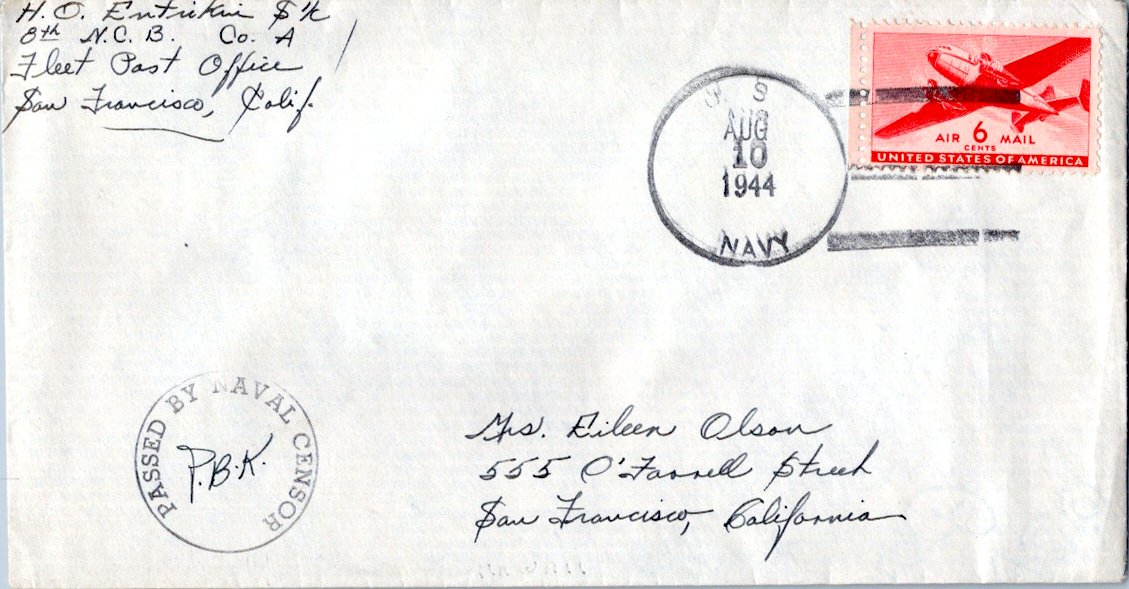 H. O. Entrikin S 1/c
8th N.C.B. Co. A
Fleet Post Office
San Francisco, Calif.
U. S.
AUG
10
1944
NAVY
AIR 6 MAIL
CENTS
UNITED STATES OF AMERICA
PASSED BY NAVAL CENSOR
P.B.K.
Mrs. Eileen Olson
555 O'Farrell Street
San Francisco, California